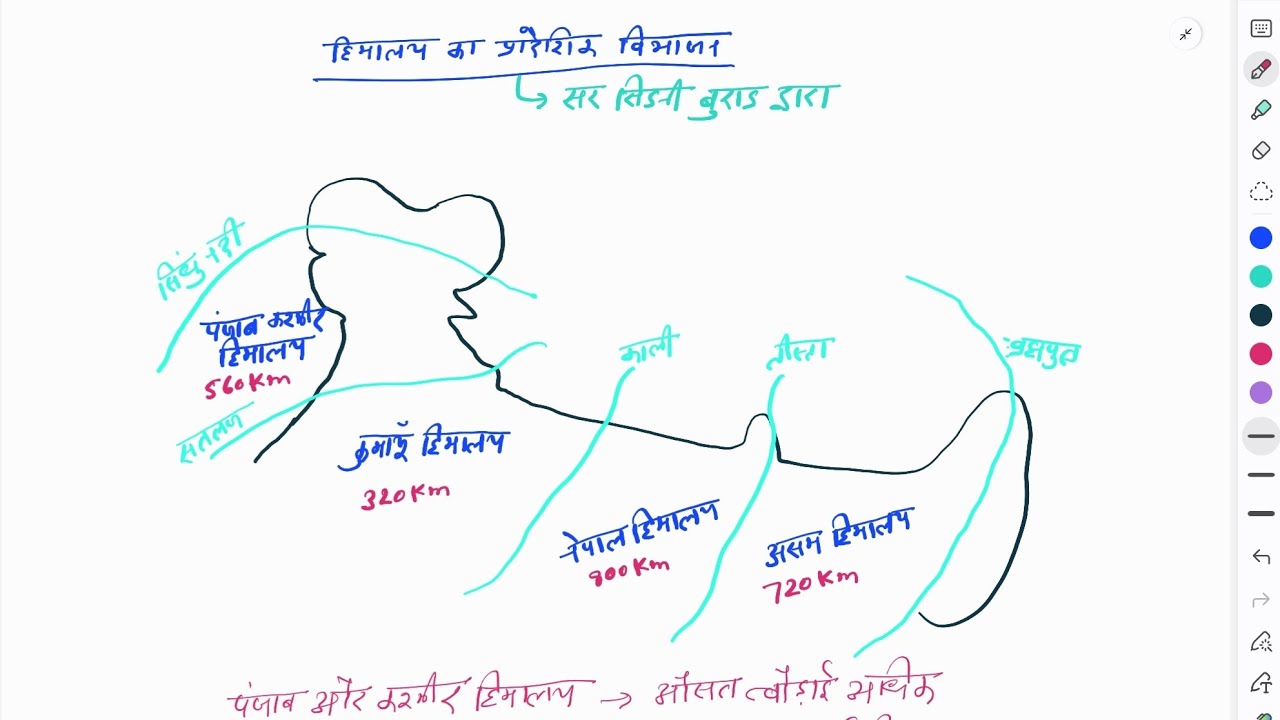 हिमालय का प्रादेशिक विभाजन
↳ सर सिडनी बुराड द्वारा
सिंधु नदी
पंजाब कश्मीर
हिमालय
560 Km
सतलज
काली
तीस्ता
ब्रह्मपुत्र
कुमाऊँ हिमालय
320 Km
नेपाल हिमालय
800 Km
असम हिमालय
720 Km
पंजाब और कश्मीर हिमालय → औसत चौड़ाई अधिक